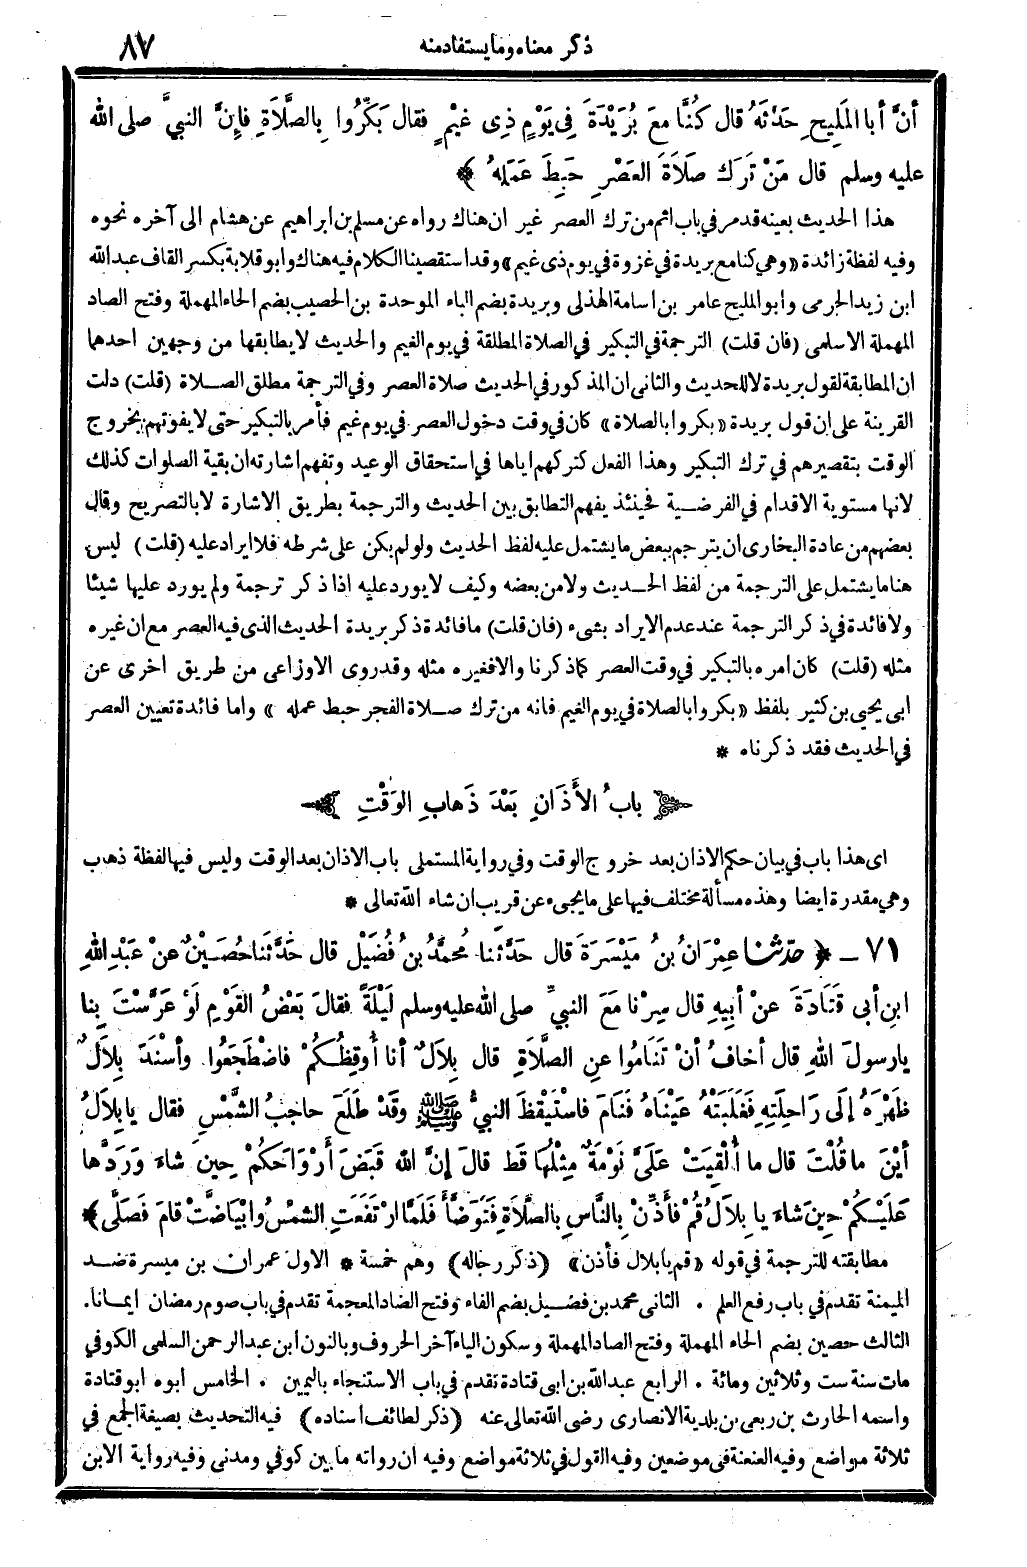 ذكر معناه وما يستفاد منه ٨٧
أنَّ أبا المَلِيحِ حَدَّثَهُ قال كُنَّا معَ بُرَيْدَةَ في يَوْمٍ ذِى غَيْمٍ فقال بَكِّرُوا بِالصَّلَاةِ فإنَّ النبيَّ صلى الله
عليه وسلم قال مَنْ تَرَكَ صَلَاةَ العَصْرِ حَبِطَ عَمَلُهُ ﴾
هذا الحديث بعينه قد مر في باب اثم من ترك العصر غير ان هناك رواه عن مسلم بن ابراهيم عن هشام الى آخره نحوه
وفيه لفظة زائدة «وهى كنا مع بريدة في غزوة في يوم ذى غيم» وقد استقصينا الكلام فيه هناك وابو قلابة بكسر القاف عبد الله
ابن زيد الجرمى وابو المليح عامر بن اسامة الهذلى وبريدة بضم الباء الموحدة بن الحصيب بضم الحاء المهملة وفتح الصاد
المهملة الاسلمى (فان قلت) الترجمة في التبكير في الصلاة المطلقة في يوم الغيم والحديث لا يطابقها من وجهين احدهما
ان المطابقة لقول بريدة لا للحديث والثانى ان المذكور في الحديث صلاة العصر وفي الترجمة مطلق الصلاة (قلت) دلت
القرينة على ان قول بريدة «بكروا بالصلاة» كان في وقت دخول العصر في يوم غيم فأمر بالتبكير حتى لا يفوتهم بخروج
الوقت بتقصيرهم في ترك التبكير وهذا الفعل كتركهم اياها في استحقاق الوعيد وتفهم اشارته ان بقية الصلوات كذلك
لانها مستوية الاقدام في الفرضية فحينئذ يفهم التطابق بين الحديث والترجمة بطريق الاشارة لا بالتصريح وقال
بعضهم من عادة البخارى ان يترجم ببعض ما يشتمل عليه لفظ الحديث ولو لم يكن على شرطه فلا ايراد عليه (قلت) ليس
هنا ما يشتمل على الترجمة من لفظ الحديث ولا من بعضه وكيف لا يورد عليه اذا ذكر ترجمة ولم يورد عليها شيئا
ولا فائدة في ذكر الترجمة عند عدم الايراد بشىء (فان قلت) ما فائدة ذكر بريدة الحديث الذى فيه العصر مع ان غيره
مثله (قلت) كان امره بالتبكير في وقت العصر كما ذكرنا والا فغيره مثله وقد روى الاوزاعى من طريق اخرى عن
ابى يحيى بن كثير بلفظ «بكروا بالصلاة في يوم الغيم فانه من ترك صلاة الفجر حبط عمله» واما فائدة تعيين العصر
في الحديث فقد ذكرناه *
﴿ بابُ الأَذَانِ بَعْدَ ذَهَابِ الوَقْتِ ﴾
اى هذا باب في بيان حكم الاذان بعد خروج الوقت وفي رواية المستملى باب الاذان بعد الوقت وليس فيها لفظة ذهاب
وهي مقدرة ايضا وهذه مسألة مختلف فيها على ما يجىء عن قريب ان شاء الله تعالى *
٧١ - ﴿ حدثنا عِمْرَانُ بنُ مَيْسَرَةَ قال حَدَّثنا مُحمَّدُ بنُ فُضَيْلٍ قال حَدَّثَنا حُصَيْنٌ عنْ عَبْدِ اللهِ
ابنِ أبى قَتَادَةَ عنْ أبِيهِ قال سِرْنا مَعَ النبيِّ صلى الله عليه وسلم لَيْلَةً فقالَ بَعْضُ القَوْمِ لَوْ عَرَّسْتَ بِنا
يا رسولَ اللهِ قال أخافُ أنْ تَنَامُوا عنِ الصَّلَاةِ قال بِلَالٌ أنا أُوقِظُكُمْ فاضْطَجَعُوا وأسْنَدَ بِلَالٌ
ظَهْرَهُ إلَى رَاحِلَتِهِ فَغَلَبَتْهُ عَيْنَاهُ فَنَامَ فاسْتَيْقَظَ النبيُّ ﷺ وقَدْ طَلَعَ حاجِبُ الشَّمْسِ فقال يا بِلَالُ
أيْنَ ما قُلْتَ قال ما أُلْقِيَتْ عَلَيَّ نَوْمَةٌ مِثْلُهَا قَط قالَ إنَّ الله قَبَضَ أرْوَاحَكُمْ حِينَ شاءَ ورَدَّها
عَلَيْكُمْ حِينَ شاءَ يا بِلَالُ قُمْ فأذِّنْ بِالنَّاسِ بِالصَّلَاةِ فَتَوَضَّأَ فَلَمَّا ارْتَفَعَتِ الشمْسُ وابْيَاضَّتْ قامَ فَصَلَّى ﴾
مطابقته للترجمة في قوله «قم يا بلال فأذن» (ذكر رجاله) وهم خمسة * الاول عمران بن ميسرة ضد
الميمنة تقدم في باب رفع العلم . الثانى محمد بن فضيل بضم الفاء وفتح الضاد المعجمة تقدم في باب صوم رمضان ايمانا .
الثالث حصين بضم الحاء المهملة وفتح الصاد المهملة وسكون الياء آخر الحروف وبالنون ابن عبد الرحمن السلمى الكوفي
مات سنة ست وثلاثين ومائة . الرابع عبد الله بن ابى قتادة تقدم في باب الاستنجاء باليمين . الخامس ابوه ابو قتادة
واسمه الحارث بن ربعى بن بلدية الانصارى رضى الله تعالى عنه (ذكر لطائف اسناده) فيه التحديث بصيغة الجمع في
ثلاثة مواضع وفيه العنعنة فى موضعين وفيه القول في ثلاثة مواضع وفيه ان رواته ما بين كوفي ومدنى وفيه رواية الابن